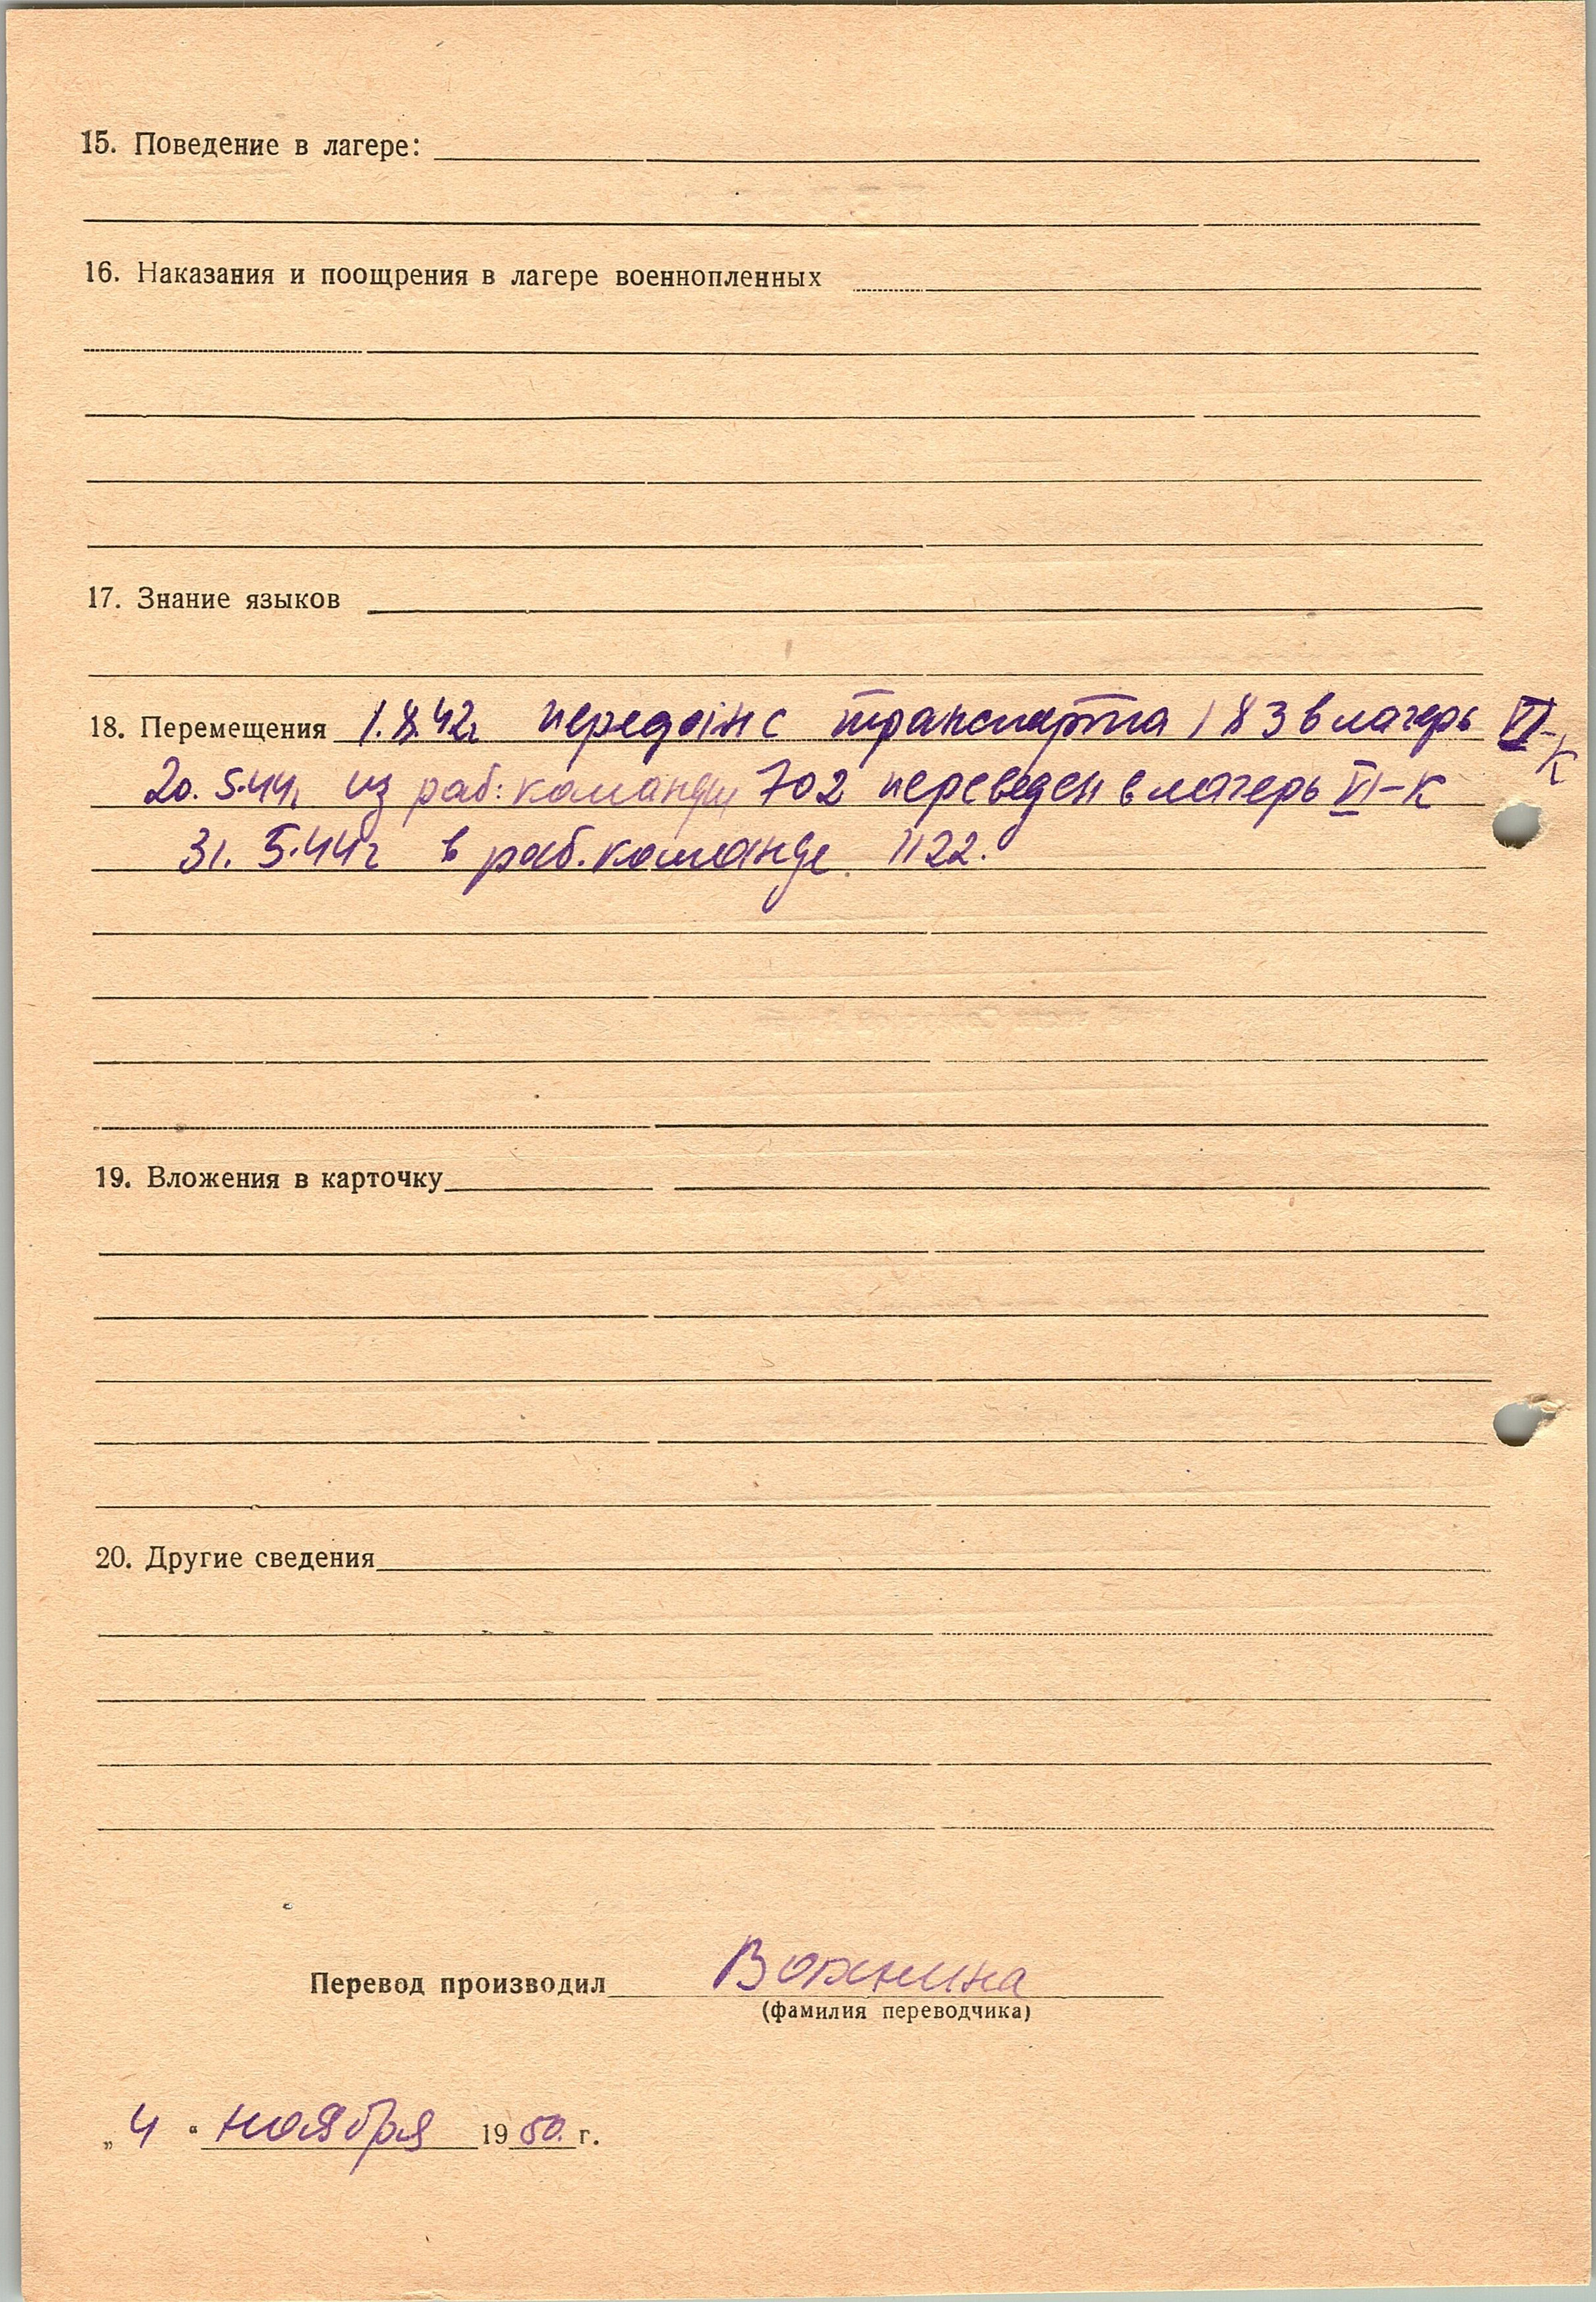 15. Поведение в лагере:
16. Наказания и поощрения в лагере военнопленных
17. Знание языков
18. Перемещения 1.8.42г передан с транспорта 183 в лагерь VI-К
20.5.44г из раб. команды 702 переведен в лагерь VI-К
31.5.44г в раб. команде 1122.
19. Вложения в карточку
20. Другие сведения
Перевод производил
(фамилия переводчика)
„4“ ноября 1950. г.